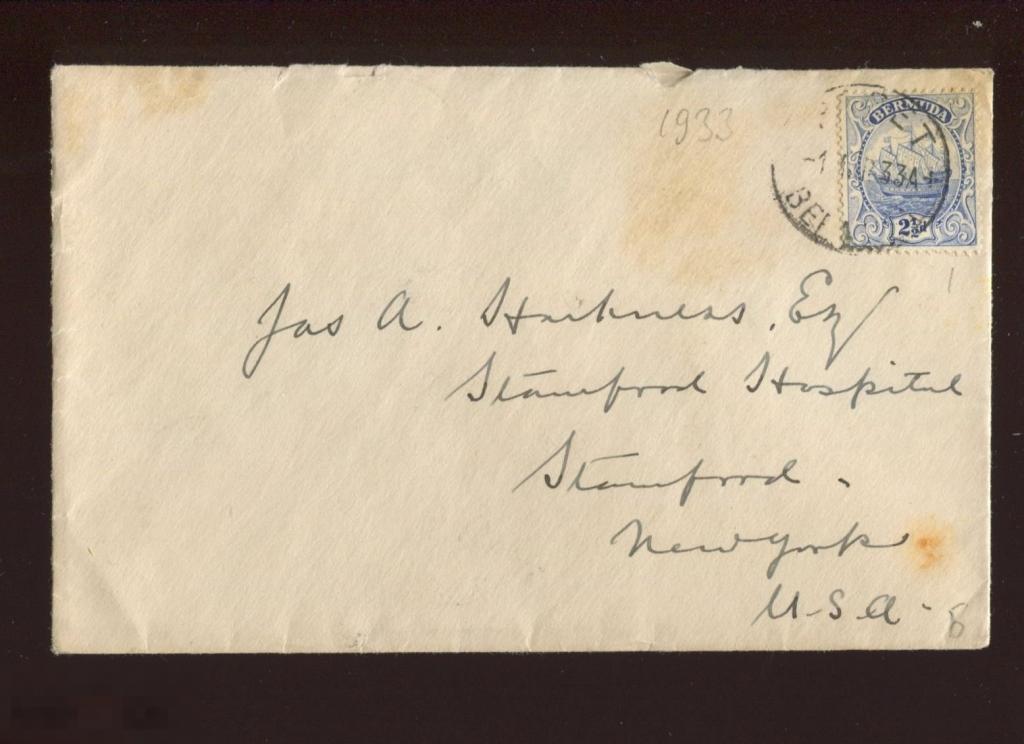 1933
BERMUDA
33
2½d
Jas A. Harkness, Esq
Stamford Hospital
Stamford.
New York
U.S.A.
8